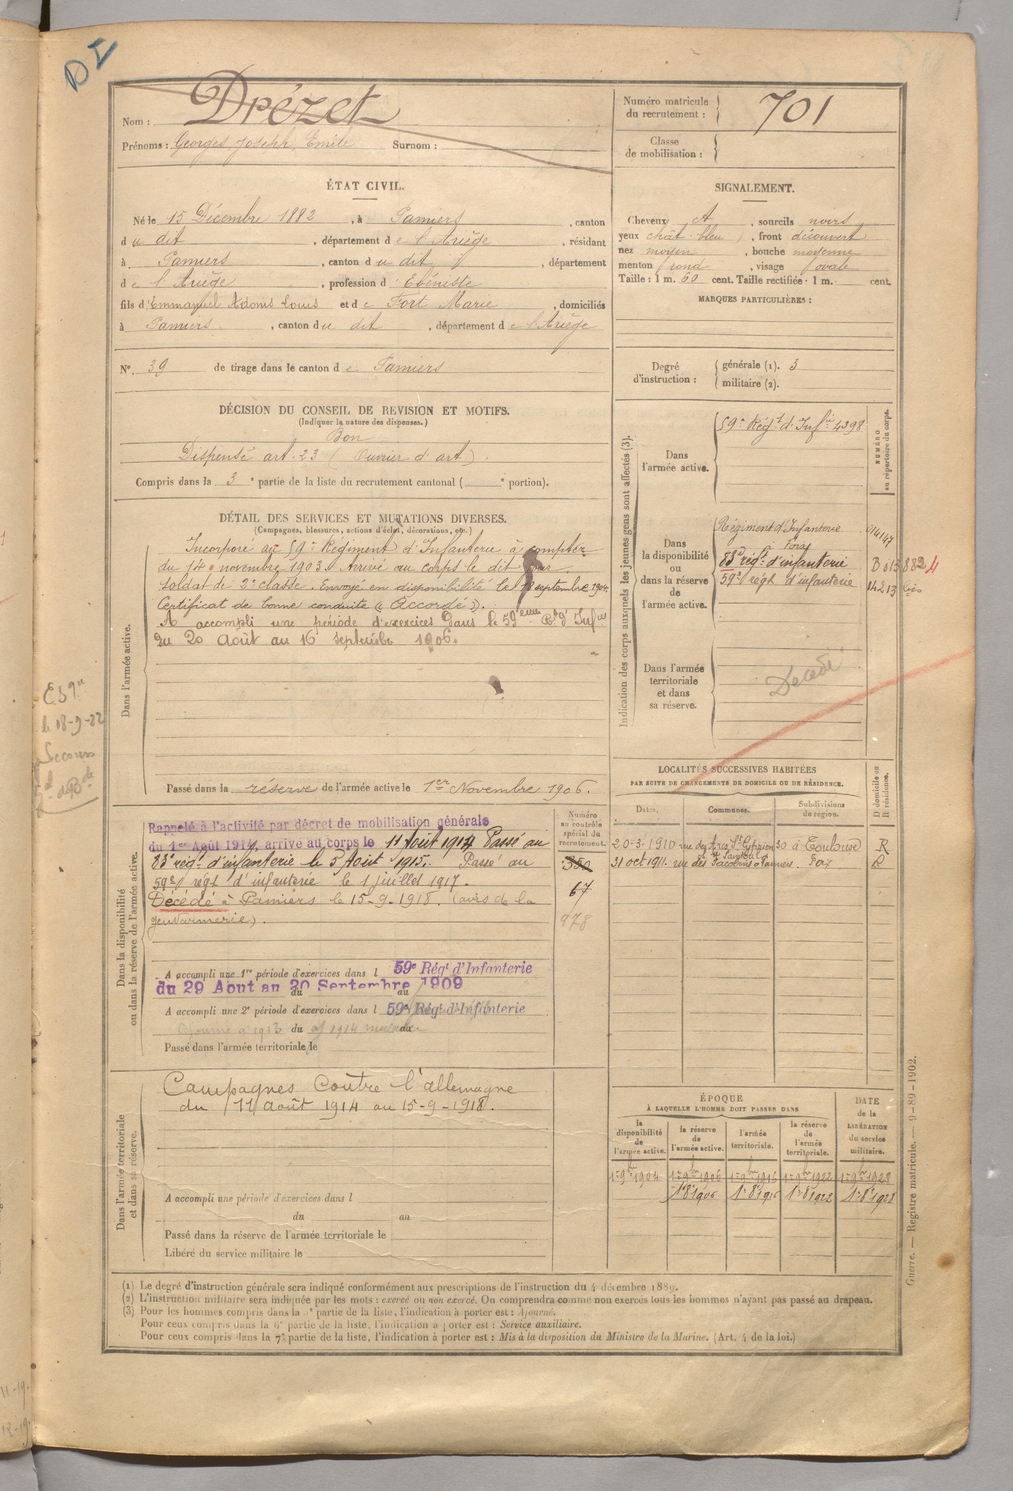 DI
Nom : Drézet
Prénoms : Georges Joseph, Emile Surnom :
Numéro matricule du recrutement : 701
Classe de mobilisation :
ÉTAT CIVIL.
Né le 15 Décembre 1882, à Pamiers, canton
du dit, département de l'Ariège, résidant
à Pamiers, canton du dit, département
de l'Ariège, profession d'Ebéniste
fils d'Emmanuel Adonis Louis et de Fort Marie, domiciliés
à Pamiers, canton du dit, département de l'Ariège
N° 39 de tirage dans le canton de Pamiers
SIGNALEMENT.
Cheveux, sourcils noirs
yeux chât bleu, front découvert
nez moyen, bouche moyenne
menton rond, visage ovale
Taille : 1 m. 60 cent. Taille rectifiée : 1 m. cent.
MARQUES PARTICULIÈRES :
Degré d'instruction : générale (1). 3
militaire (2).
DÉCISION DU CONSEIL DE REVISION ET MOTIFS.
(Indiquer la nature des dispenses.)
Bon
Dispensé art. 23 (Ouvrier d'art).
Compris dans la 3e partie de la liste du recrutement cantonal ( e portion).
DÉTAIL DES SERVICES ET MUTATIONS DIVERSES.
(Campagnes, blessures, actions d'éclat, décorations, etc.)
Dans l'armée active.
Incorporé au 59e Régiment d'Infanterie à compter
du 14 novembre 1903. Arrivé au corps le dit jour
soldat de 2e classe. Envoyé en disponibilité le septembre 1904.
Certificat de bonne conduite "Accordé".
A accompli une période d'exercices dans le 59eme Rgt d'Infrie
du 20 Août au 16 septembre 1906.
le 18-9-22
Secours
Passé dans la réserve de l'armée active le 1er Novembre 1906.
Indication des corps auxquels les jeunes gens sont affectés (3).
NUMÉRO au répertoire du corps.
Dans l'armée active.
59e Régt d'Infie 4398
Dans la disponibilité ou dans la réserve de l'armée active.
Régiment d'Infanterie
à Foix
83e régt d'infanterie
59e régt d'infanterie
Dans l'armée territoriale et dans sa réserve.
Décédé
Dans la disponibilité ou dans la réserve de l'armée active.
Numéro au contrôle spécial du recrutement.
Rappelé à l'activité par décret de mobilisation générale
du 1er Août 1914, arrivé au corps le 11 Août 1914. Passé au
83e régt d'infanterie le 5 Août 1915. Passé au
59e régt d'infanterie le 1 juillet 1917.
Décédé à Pamiers le 15-9-1918. (avis de la
gendarmerie).
350
67
978
A accompli une 1re période d'exercices dans l 59e Régt d'Infanterie
du 29 Aout au 20 Septembre 1909
du au
A accompli une 2e période d'exercices dans l 59e Régt d'Infanterie
du au
Passé dans l'armée territoriale le
LOCALITÉS SUCCESSIVES HABITÉES
PAR SUITE DE CHANGEMENTS DE DOMICILE OU DE RÉSIDENCE.
Dates. Communes. Subdivisions de région. D domicile ou R résidence.
20-3-1910 rue des Arcs St Cyprien 30 à Toulouse R
31 oct 1911. rue des Jacobins Pamiers. Foix
Dans l'armée territoriale et dans sa réserve.
Campagnes Contre l'allemagne
du 11 août 1914 au 15-9-1918.
A accompli une période d'exercices dans l
du au
Passé dans la réserve de l'armée territoriale le
Libéré du service militaire le
ÉPOQUE
À LAQUELLE L'HOMME DOIT PASSER DANS
DATE de la LIBÉRATION du service militaire.
la disponibilité de l'armée active. la réserve de l'armée active. l'armée territoriale. la réserve de l'armée territoriale.
1 9bre 1904 1 9bre 1906 1 9bre 1916 1 9bre 1922 1 9bre 1928
(1) Le degré d'instruction générale sera indiqué conformément aux prescriptions de l'instruction du 4 décembre 1889.
(2) L'instruction militaire sera indiquée par les mots : exercé ou non exercé. On comprendra comme non exercés tous les hommes n'ayant pas passé au drapeau.
(3) Pour les hommes compris dans la partie de la liste, l'indication à porter est : Ajourné.
Pour ceux compris dans la 6e partie de la liste, l'indication à porter est : Service auxiliaire.
Pour ceux compris dans la 7e partie de la liste, l'indication à porter est : Mis à la disposition du Ministre de la Marine. (Art. 4 de la loi.)
Guerre. — Registre matricule. — 9-89-1902.